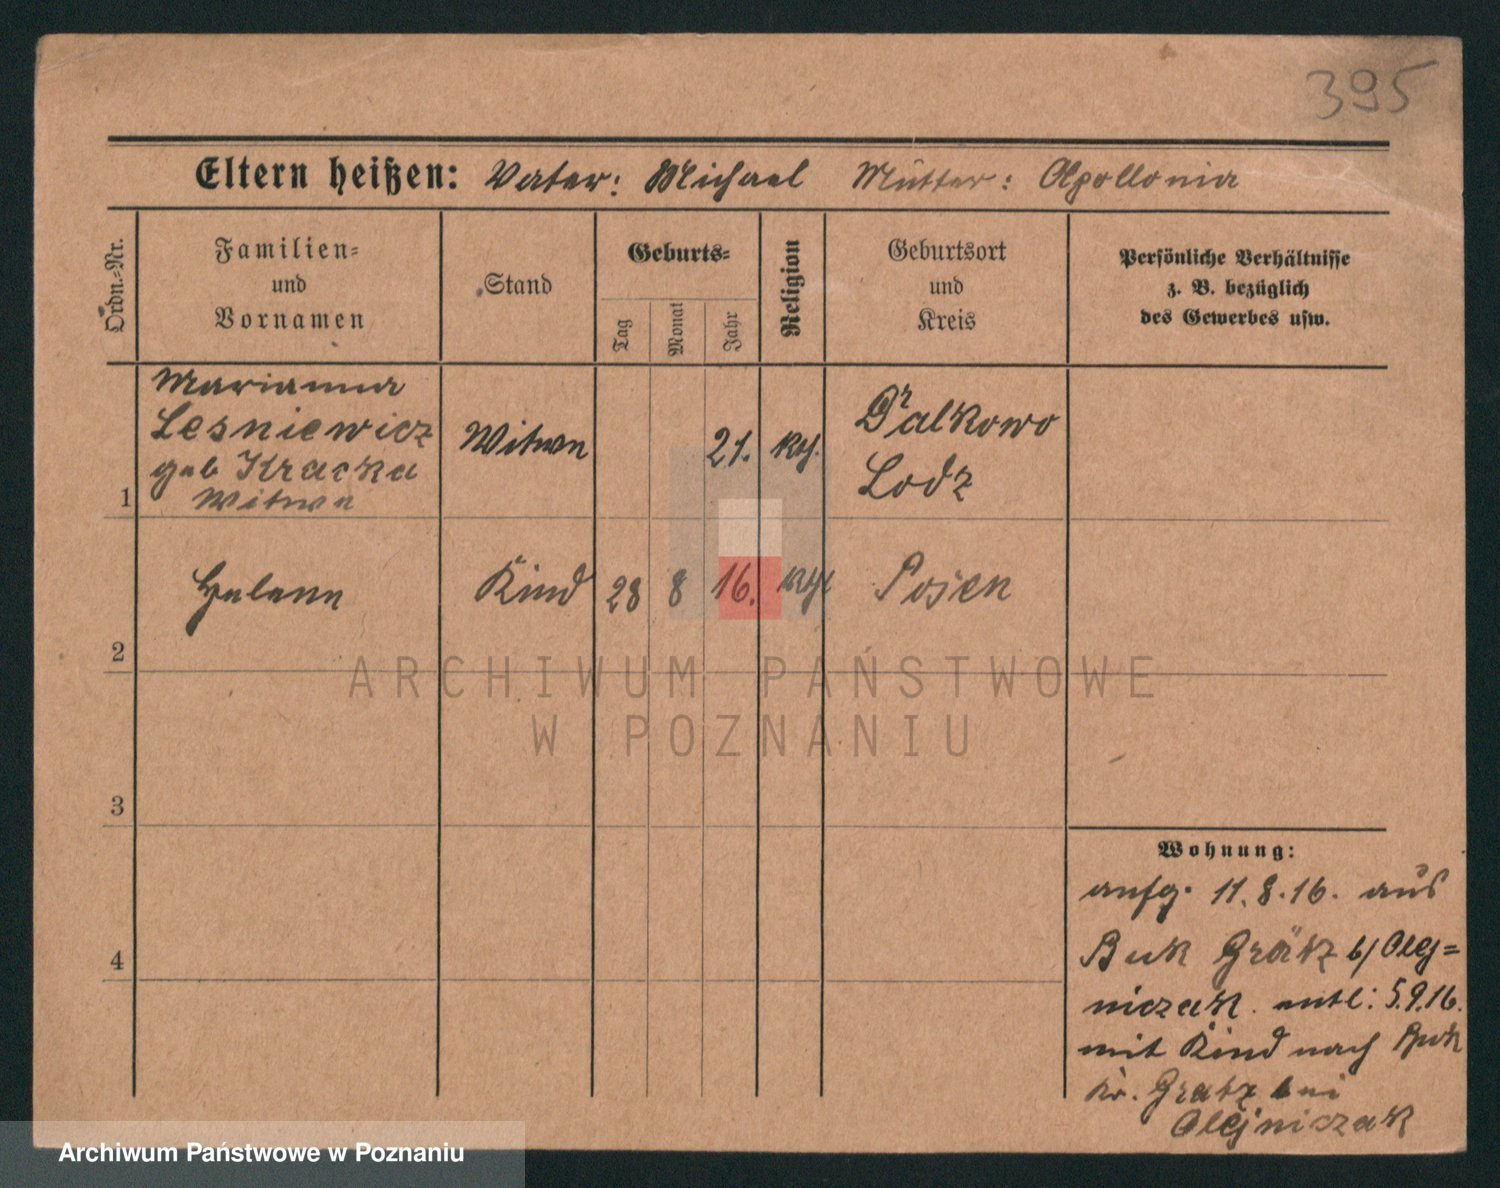 395
Eltern heißen: Vater: Michael Mutter: Apollonia
Ordn.-Nr.
Familien-
und
Vornamen
Stand
Geburts-
Tag
Monat
Jahr
Religion
Geburtsort
und
Kreis
Persönliche Verhältnisse
z. B. bezüglich
des Gewerbes usw.
Marianna
Lesniewicz
geb Kracka
Witwe
1
Witwe
21.
kth.
Lodz
Helene
2
Kind
28
8
16.
kth
Posen
ARCHIWUM PAŃSTWOWE
W POZNANIU
3
4
Wohnung:
aufg. 11.8.16. aus
Buk Grätz b/ Olej=
niczak. entl: 5.9.16.
mit Kind nach Buk
Kr. Gratz bei
Olejniczak
Archiwum Państwowe w Poznaniu